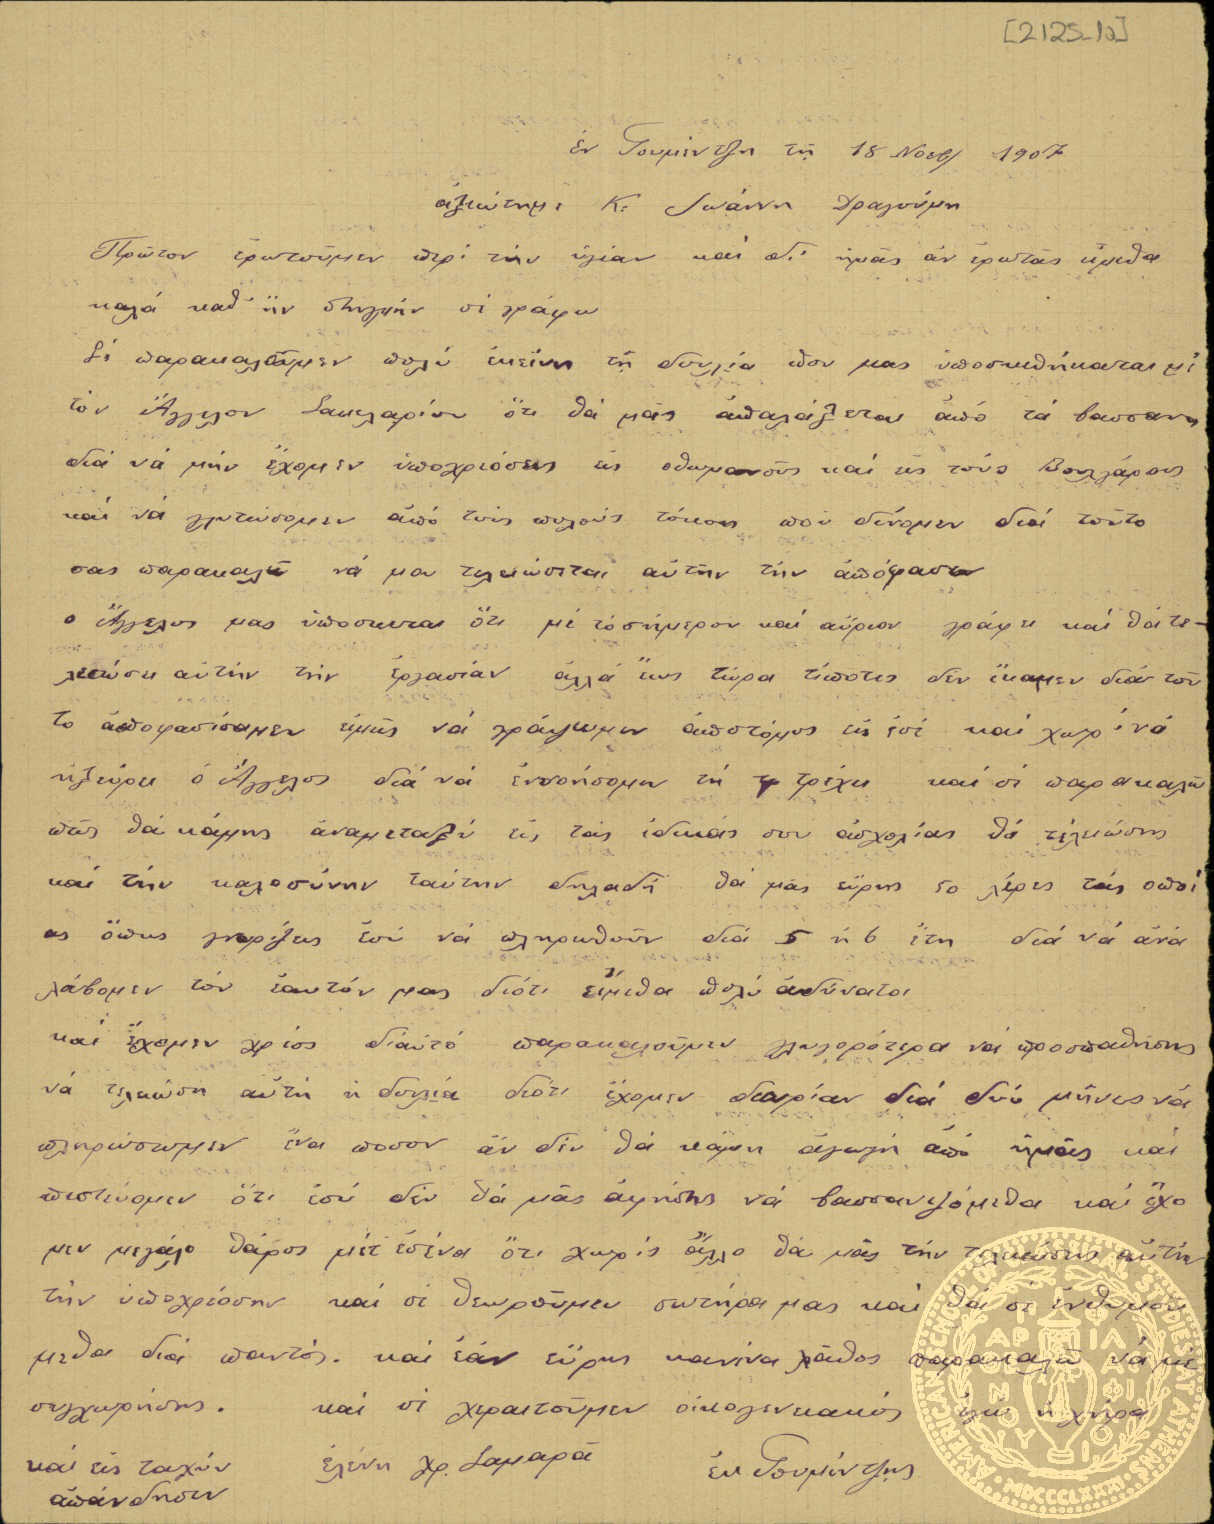 [2125_1a]
ἐν Γουμέντζη τῇ 18 Νοεβ/ 1907
ἀξιώτημε Κε Ἰωάννη Δραγούμη
Πρῶτον ἐρωτοῦμεν περί τήν ὑγίαν καί δι ἡμᾶς ἄν ἐρωτᾶς ἤμεθα
καλά καθ' ἥν στηγμήν σέ γράφω
Σέ παρακαλοῦμεν πολύ ἐκείνη τῇ δουλιά που μας ὑποσκεθήκαται μέ
τόν Ἄγγελον Σακελαρίου ὅτι θά μᾶς ἀπαλάξεται ἀπό τά βασσανα
διά νά μήν ἔχομεν ὑποχριόσεις εἰς οθωμανούς καί εἰς τούς Βουλγάρους
καί νά γλυτώσομεν ἀπό τούς πολούς τόκους πού δίνομεν διά τοῦτο
σας παρακαλῶ νά μου τελειώσεται αὐτήν τήν ἀπόφασιν
ο Ἄγγελος μας ὑποσκεται ὅτι μέ τό σήμερον καί αὔριον γράφει καί θά τε-
λειώσει αὐτήν τήν ἐργασίαν ἀλλά ἕως τώρα τίποτες δεν ἔκαμεν διά τοῦ
το ἀποφασίσαμεν ἐμεῖς νά γράψωμεν ἀποστόμος εἰς ἐσέ καί χωρί νά
ἠξεύρει ὁ Ἄγγελος διά νά ἐννοήσομεν τή τρέχει καί σέ παρακαλῶ
πῶς θά κάμης ἀναμεταξύ εἰς τάς ἰδικάς σου ἀσχολίας θά τελειώσης
καί τήν καλοσύνην ταύτην δηλαδή θά μᾶς εὕρης 50 λίρες τάς οποί
ας ὅπως γνορίζεις ἐσύ νά πληρωθοῦν διά 5 ἤ 6 ἔτη διά νά ἀνα
λάβομεν τόν ἑαυτόν μας διότι εἴμεθα πολύ ἀδύνατοι
καί ἔχομεν χρέος δι αὐτό παρακαλοῦμεν γληγορότερα νά προσπαθήσης
νά τελειώση αὐτή ἡ δουλιά διότι ἔχομεν διορίαν διά δυό μήνες νά
πληρώσωμεν ἕνα ποσον ἄν δέν θά κάμη ἀγωγή ἀπό ἡμᾶς καί
πιστεύομεν ὅτι ἐσύ δέν θά μᾶς ἀφήσης νά βασσανιζόμεθα καί ἔχο
μεν μεγάλο θάρος μέ ἐσένα ὅτι χωρίς ἄλλο θά μᾶς τήν τελειώσης αὐτήν
τήν ὑποχρέοσην καί σέ θεωροῦμεν σωτήρα μας καί θά σέ ἐνθυμού
μεθα διά παντός. καί ἐάν εὕρης κανένα λᾶθος παρακαλῶ νά μέ
συγχωρήσης. καί σέ χεραιτοῦμεν οἰκογενειακός ἐγώ ἡ χήρα
καί εἰς ταχύν ἐλένη χρ. Σαμαρᾶ ἐκ Γουμέντζης
ἀπάνδησιν
AMERICAN SCHOOL OF CLASSICAL STUDIES AT ATHENS
MDCCCLXXXI